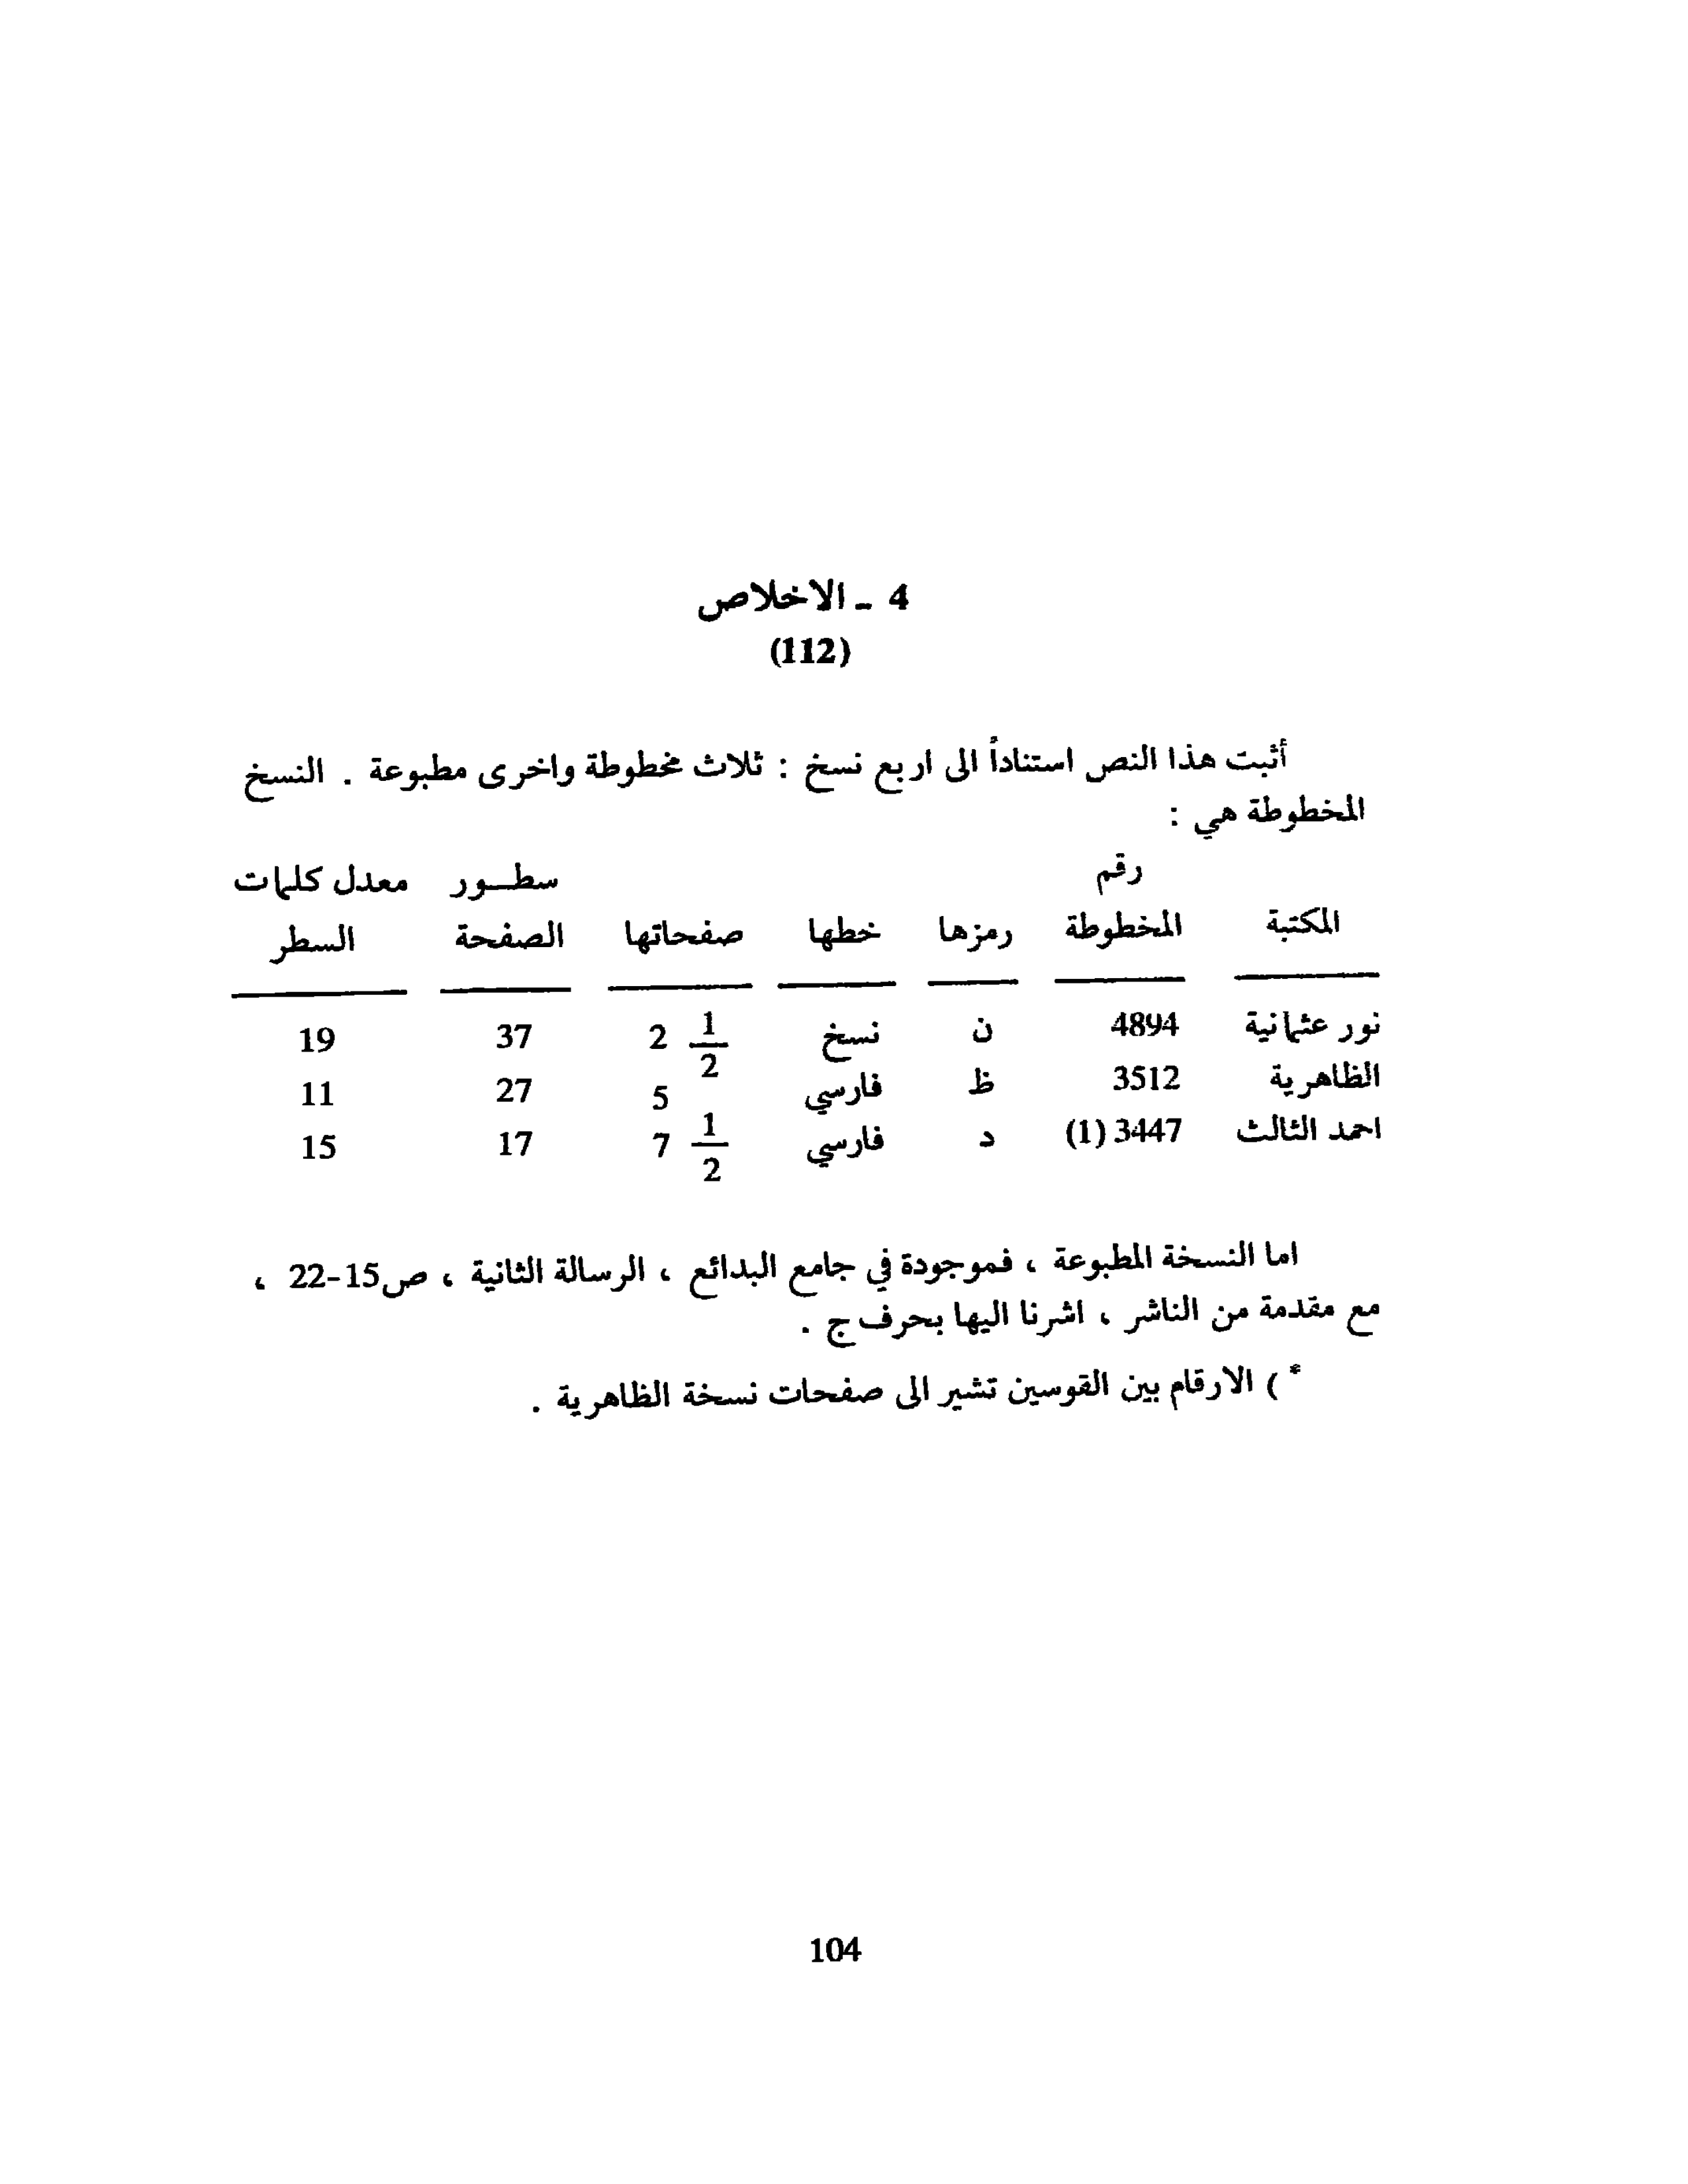 4 ـ الاخلاص
(112)
أثبت هذا النص استناداً الى اربع نسخ : ثلاث مخطوطة واخرى مطبوعة . النسخ
المخطوطة هي :
رقم سطــور معدل كلمات
المكتبة المخطوطة رمزها خطها صفحاتها الصفحة السطر
نور عثمانية 4894 ن نسخ 2 1/2 37 19
الظاهرية 3512 ظ فارسي 5 27 11
احمد الثالث 3447 (1) د فارسي 7 1/2 17 15
اما النسخة المطبوعة ، فموجودة في جامع البدائع ، الرسالة الثانية ، ص15-22 ،
مع مقدمة من الناشر ، اشرنا اليها بحرف ج .
* ) الارقام بين القوسين تشير الى صفحات نسخة الظاهرية .
104